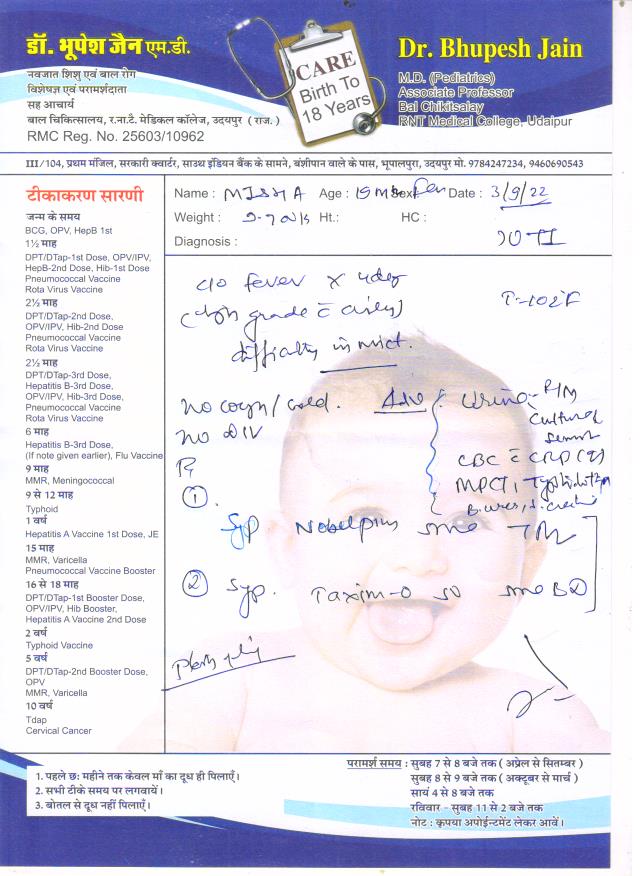 डॉ. भूपेश जैन एम.डी.
नवजात शिशु एवं बाल रोग
विशेषज्ञ एवं परामर्शदाता
सह आचार्य
बाल चिकित्सालय, र.ना.टै. मेडिकल कॉलेज, उदयपुर ( राज. )
RMC Reg. No. 25603/10962
CARE
Birth To
18 Years
Dr. Bhupesh Jain
M.D. (Pediatrics)
Associate Professor
Bal Chikitsalay
RNT Medical College, Udaipur
III/104, प्रथम मंजिल, सरकारी क्वार्टर, साउथ इंडियन बैंक के सामने, बंशीपान वाले के पास, भूपालपुरा, उदयपुर मो. 9784247234, 9460690543
टीकाकरण सारणी
जन्म के समय
BCG, OPV, HepB 1st
1½ माह
DPT/DTap-1st Dose, OPV/IPV,
HepB-2nd Dose, Hib-1st Dose
Pneumococcal Vaccine
Rota Virus Vaccine
2½ माह
DPT/DTap-2nd Dose,
OPV/IPV, Hib-2nd Dose
Pneumococcal Vaccine
Rota Virus Vaccine
2½ माह
DPT/DTap-3rd Dose,
Hepatitis B-3rd Dose,
OPV/IPV, Hib-3rd Dose,
Pneumococcal Vaccine
Rota Virus Vaccine
6 माह
Hepatitis B-3rd Dose,
(If note given earlier), Flu Vaccine
9 माह
MMR, Meningococcal
9 से 12 माह
Typhoid
1 वर्ष
Hepatitis A Vaccine 1st Dose, JE
15 माह
MMR, Varicella
Pneumococcal Vaccine Booster
16 से 18 माह
DPT/DTap-1st Booster Dose,
OPV/IPV, Hib Booster,
Hepatitis A Vaccine 2nd Dose
2 वर्ष
Typhoid Vaccine
5 वर्ष
DPT/DTap-2nd Booster Dose,
OPV
MMR, Varicella
10 वर्ष
Tdap
Cervical Cancer
Name : Age : Sex : Date : 3/9/22
Weight : Ht.: HC :
Diagnosis :
c/o fever x T-102F
grade c
difficulty in mict.
No / cold. Adv Urine- R/M
Culture
CBC c CRP
MPCT,
①
Syp
② Syp. Taxim-O 50 BD
1. पहले छ: महीने तक केवल माँ का दूध ही पिलाएँ।
2. सभी टीके समय पर लगवायें।
3. बोतल से दूध नहीं पिलाएँ।
परामर्श समय : सुबह 7 से 8 बजे तक ( अप्रेल से सितम्बर )
सुबह 8 से 9 बजे तक ( अक्टूबर से मार्च )
सायं 4 से 8 बजे तक
रविवार - सुबह 11 से 2 बजे तक
नोट : कृपया अपोईन्टमेंट लेकर आवें।